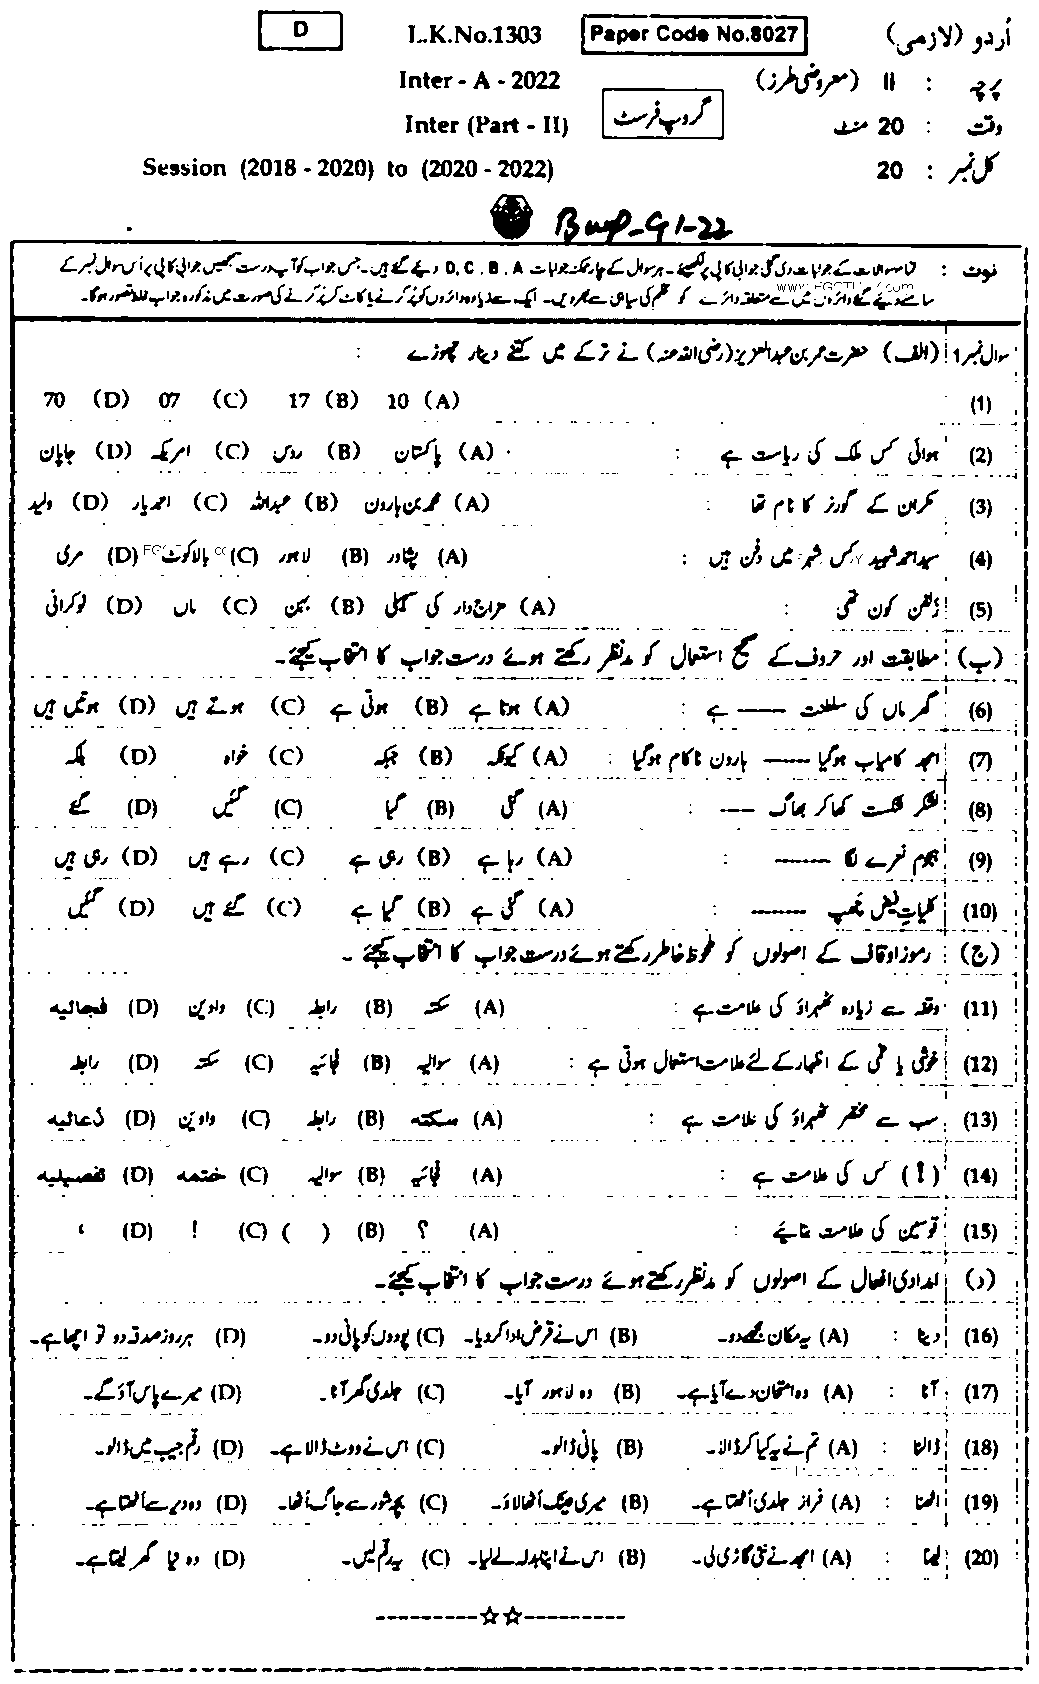 اُردو (لازمی) Paper Code No.8027 L.K.No.1303 D
پرچہ : II (معروضی طرز) Inter - A - 2022
وقت : 20 منٹ گروپ فرسٹ Inter (Part - II)
کل نمبر : 20 Session (2018 - 2020) to (2020 - 2022)
Bwp-G1-22
نوٹ : تمام سوالات کے جوابات دی گئی جوابی کاپی پر لکھیئے۔ ہر سوال کے چار ممکنہ جوابات D, C, B, A دیئے گئے ہیں۔ جس جواب کو آپ درست سمجھیں جوابی کاپی پر اُس سوال نمبر کے
سامنے دیئے گئے دائروں میں سے متعلقہ دائرے کو قلم کی سیاہی سے بھر دیں۔ ایک سے زیادہ دائروں کو پُر کرنے یا کاٹ کر پُر کرنے کی صورت میں مذکورہ جواب غلط تصور ہوگا۔
سوال نمبر 1 (الف) حضرت عمر بن عبدالعزیز (رضی اللہ عنہ) نے ترکے میں کتنے دینار چھوڑے :
(1) (A) 10 (B) 17 (C) 07 (D) 70
(2) ہوائی کس ملک کی ریاست ہے : (A) پاکستان (B) روس (C) امریکہ (D) جاپان
(3) مکران کے گورنر کا نام تھا : (A) محمد بن ہارون (B) عبداللہ (C) احمد یار (D) ولید
(4) سید احمد شہید کس شہر میں دفن ہیں : (A) پشاور (B) لاہور (C) بالاکوٹ (D) مری
(5) زلفن کون تھی : (A) مزاج دار کی سہیلی (B) بہن (C) ماں (D) نوکرانی
(ب) مطابقت اور حروف کے صحیح استعمال کو مدنظر رکھتے ہوئے درست جواب کا انتخاب کیجئے۔
(6) گھر ماں کی سلطنت ---- ہے : (A) ہوتا ہے (B) ہوتی ہے (C) ہوتے ہیں (D) ہوتیں ہیں
(7) امجد کامیاب ہوگیا ---- ہارون ناکام ہوگیا : (A) کیونکہ (B) جبکہ (C) خواہ (D) بلکہ
(8) لشکر شکست کھا کر بھاگ ---- : (A) گئی (B) گیا (C) گئیں (D) گئے
(9) ہجوم نعرے لگا ------ : (A) رہا ہے (B) رہی ہے (C) رہے ہیں (D) رہی ہیں
(10) کلیاتِ فیض چھپ ------ : (A) گئی ہے (B) گیا ہے (C) گئے ہیں (D) گئیں
(ج) رموز اوقاف کے اصولوں کو ملحوظ خاطر رکھتے ہوئے درست جواب کا انتخاب کیجئے۔
(11) وقفہ سے زیادہ ٹھہراؤ کی علامت ہے : (A) سکتہ (B) رابطہ (C) واوین (D) فجائیہ
(12) خوشی یا غمی کے اظہار کے لئے علامت استعمال ہوتی ہے : (A) سوالیہ (B) فجائیہ (C) سکتہ (D) رابطہ
(13) سب سے مختصر ٹھہراؤ کی علامت ہے : (A) سکتہ (B) رابطہ (C) واوین (D) دُعائیہ
(14) (!) کس کی علامت ہے : (A) فجائیہ (B) سوالیہ (C) ختمہ (D) تفصیلیہ
(15) قوسین کی علامت بتائیے : (A) ؟ (B) ( ) (C) ! (D) ،
(د) امدادی افعال کے اصولوں کو مدنظر رکھتے ہوئے درست جواب کا انتخاب کیجئے۔
(16) دینا : (A) یہ مکان مجھے دو۔ (B) اس نے قرض ادا کر دیا۔ (C) پودوں کو پانی دو۔ (D) ہر روز صدقہ دو تو اچھا ہے۔
(17) آنا : (A) وہ امتحان دے آیا ہے۔ (B) وہ لاہور آیا۔ (C) جلدی گھر آنا۔ (D) میرے پاس آؤ گے۔
(18) ڈالنا : (A) تم نے یہ کیا کر ڈالا۔ (B) پانی ڈالو۔ (C) اس نے ووٹ ڈالا ہے۔ (D) رقم جیب میں ڈالو۔
(19) اٹھنا : (A) فراز جلدی اُٹھتا ہے۔ (B) میری عینک اُٹھا لاؤ۔ (C) بچہ شور سے جاگ اُٹھا۔ (D) وہ دیر سے اُٹھتا ہے۔
(20) لینا : (A) امجد نے نئی گاڑی لی۔ (B) اس نے اپنا بدلہ لے لیا۔ (C) یہ رقم لیں۔ (D) وہ نیا گھر لیتا ہے۔